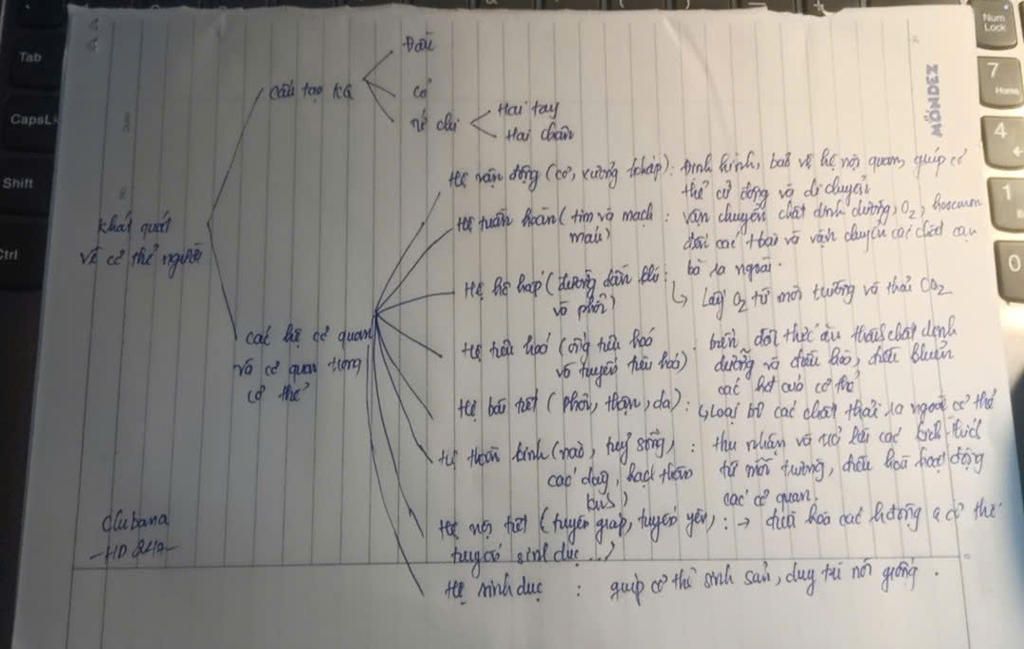 Đầu
cấu tạo KQ
cổ
tứ chi
Hai tay
Hai chân
khái quát
về cơ thể người
các hệ cơ quan
và cơ quan trong
cơ thể
Hệ vận động (cơ, xương khớp) : Định hình, bảo vệ hệ nội quan, giúp cơ
thể cử động và di chuyển
Hệ tuần hoàn (tim và mạch : vận chuyển chất dinh dưỡng, O2,
máu) đến các và vận chuyển các chất cặn
bã ra ngoài.
Hệ hô hấp (đường dẫn khí :
và phổi) ↳ Lấy O2 từ môi trường và thải CO2
Hệ tiêu hoá (ống tiêu hoá : biến đổi thức ăn thành chất dinh
và tuyến tiêu hoá) dưỡng và điều hoà, điều
các cơ thể
Hệ bài tiết (phổi, thận, da) : ↳ Loại bỏ các chất thải ra ngoài cơ thể
Hệ thần kinh (não, tuỷ sống, : thu nhận và trả lời các kích thích
các dây, hạch thần từ môi trường, điều hoà hoạt động
kinh) các cơ quan.
Hệ nội tiết (tuyến giáp, tuyến yên, : → điều hoà các cơ thể
tuyến sinh dục ...)
Hệ sinh dục : giúp cơ thể sinh sản, duy trì nòi giống.
Clubana
-HD 247-
MÔNDEZ
Tab
CapsL
Shift
Ctrl
Num
Lock
7
Home
4
←
1
0